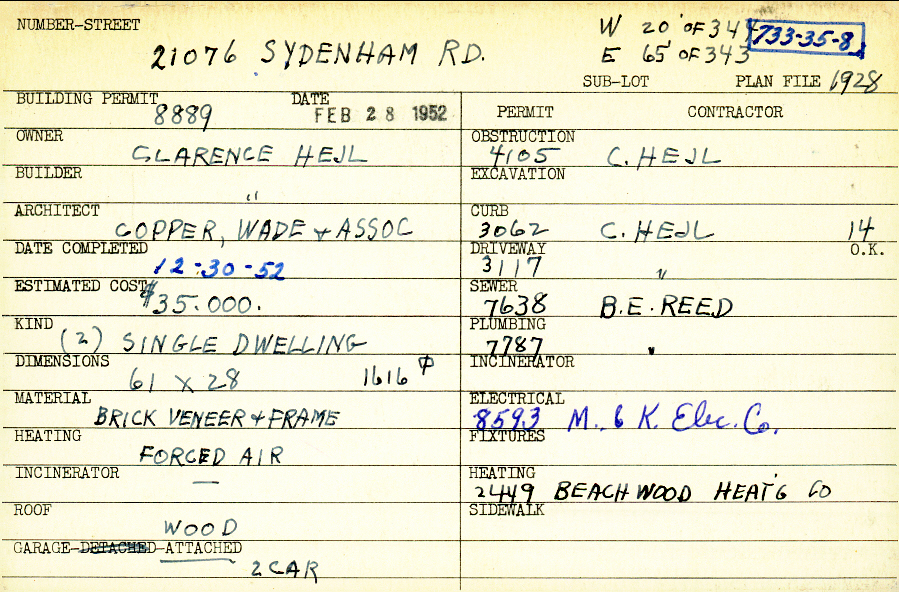 NUMBER-STREET
21076 SYDENHAM RD.
W 20' OF 344
E 65' OF 343
733-35-8
SUB-LOT PLAN FILE 1928
BUILDING PERMIT 8889 DATE FEB 28 1952
PERMIT CONTRACTOR
OWNER CLARENCE HEJL
OBSTRUCTION 4105 C. HEJL
BUILDER "
EXCAVATION
ARCHITECT COPPER, WADE + ASSOC
CURB 3062 C. HEJL 14
DATE COMPLETED 12-30-52
DRIVEWAY 3117 " O.K.
ESTIMATED COST $35.000.
SEWER 7638 B.E. REED
KIND (2) SINGLE DWELLING
PLUMBING 7787 "
DIMENSIONS 61 X 28 1616
INCINERATOR
MATERIAL BRICK VENEER + FRAME
ELECTRICAL 8593 M. & K. Elec. Co.
HEATING FORCED AIR
FIXTURES
INCINERATOR —
HEATING 2449 BEACHWOOD HEAT'G CO
ROOF WOOD
SIDEWALK
GARAGE-DETACHED-ATTACHED
2 CAR